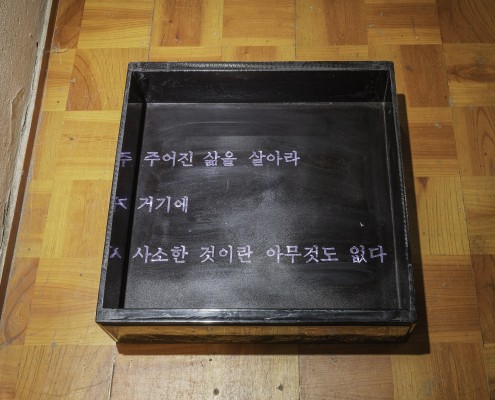 주어진 삶을 살아라
거기에
사소한 것이란 아무것도 없다